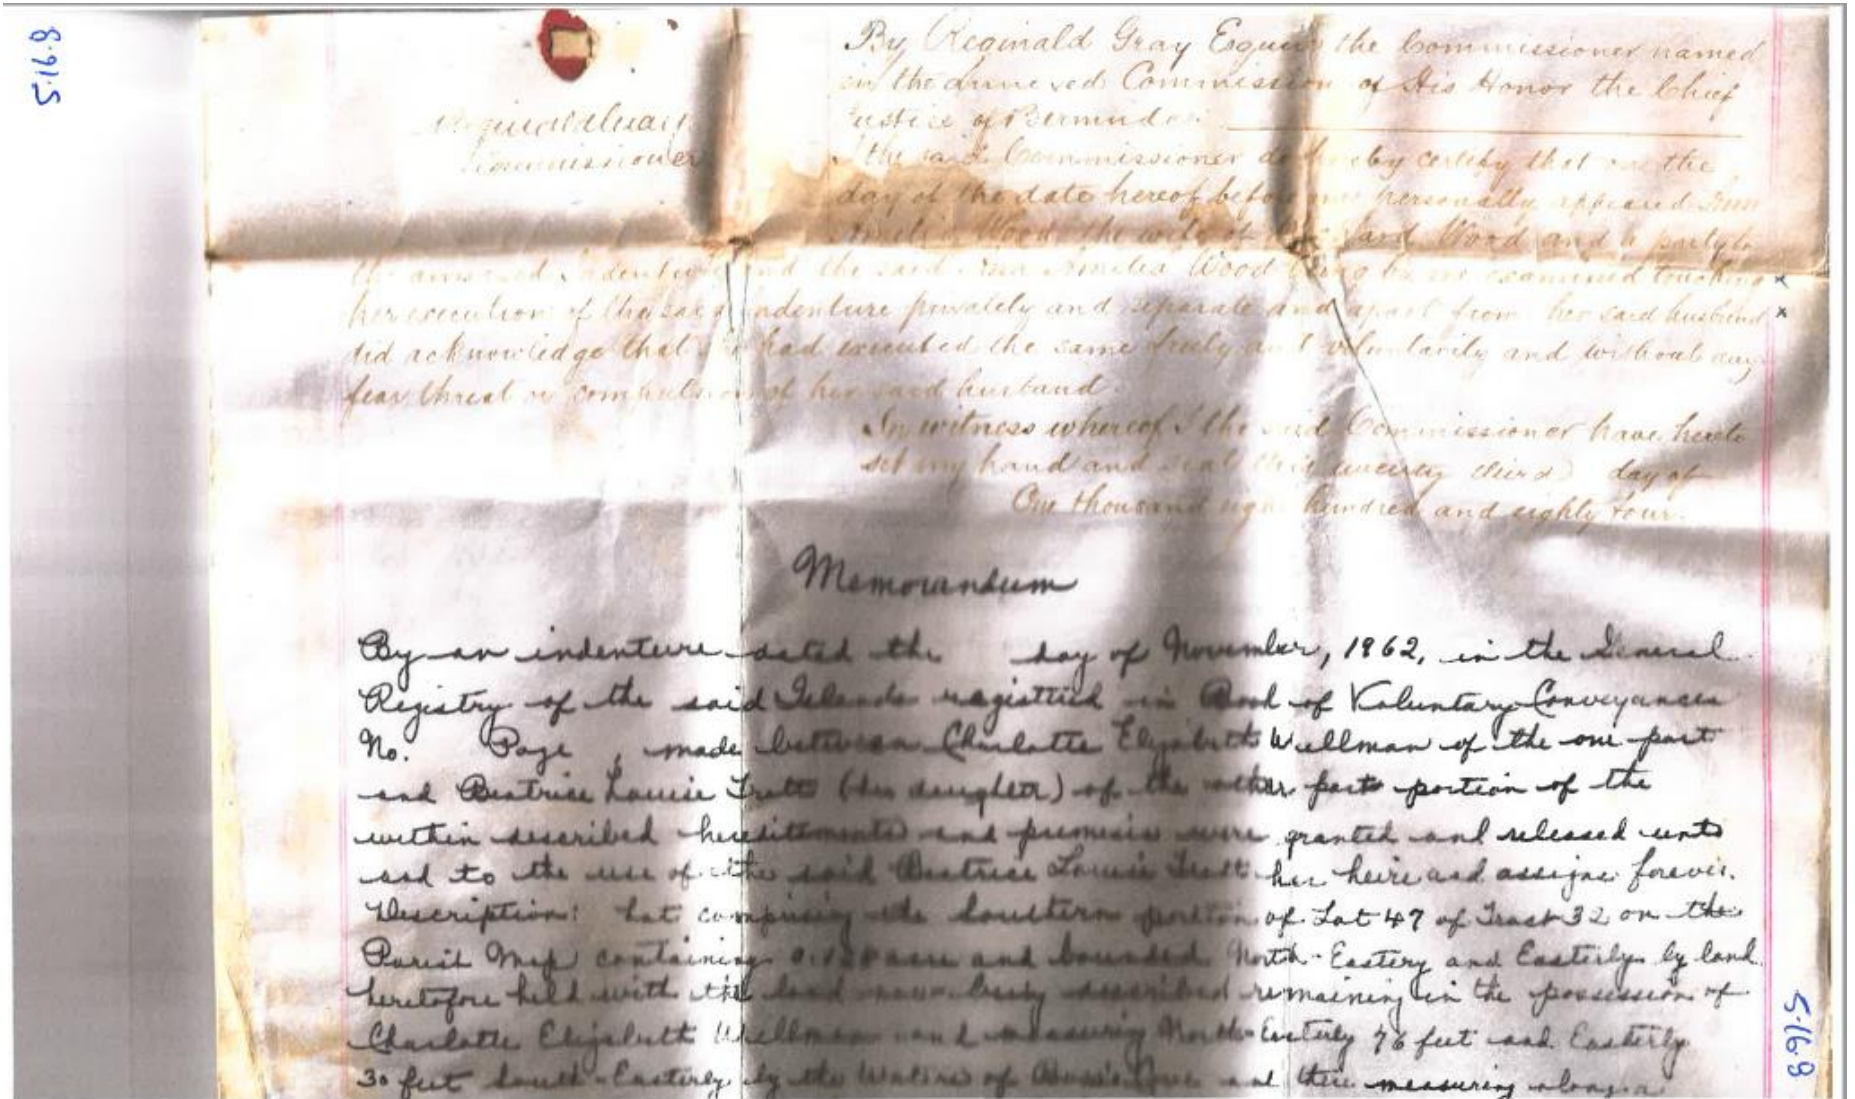 5·16·8
By Reginald Gray Esquire the Commissioner named
in the annexed Commission of His Honor the Chief
Justice of Bermuda.
Reginald Gray
Commissioner
I the said Commissioner do hereby certify that on the
day of the date hereof before me personally appeared Ann
Amelia Wood the wife of the said Wood and a party to
the annexed Indenture and the said Ann Amelia Wood being by me examined touching
her execution of the said Indenture privately and separate and apart from her said husband
did acknowledge that she had executed the same freely and voluntarily and without any
fear threat or compulsion of her said husband.
In witness whereof I the said Commissioner have hereto
set my hand and seal this twenty third day of
One thousand eight hundred and eighty four.
Memorandum
By an indenture dated the day of November, 1962, in the General
Registry of the said Islands registered in Book of Voluntary Conveyances
No. Page , made between Charlotte Elizabeth Wellman of the one part
and Beatrice Louise Trott (her daughter) of the other part portion of the
within described hereditaments and premises were granted and released unto
and to the use of the said Beatrice Louise Trott her heirs and assigns forever.
Description: Lot comprising the Southern portion of Lot 47 of Tract 32 on the
Parish Map containing acre and bounded North-Eastery and Easterly by land
heretofore held with the land now being described remaining in the possession of
Charlotte Elizabeth Wellman and measuring North-Easterly 76 feet and Easterly
30 feet South-Easterly by the Waters of Cove and there measuring along a
5·16·8